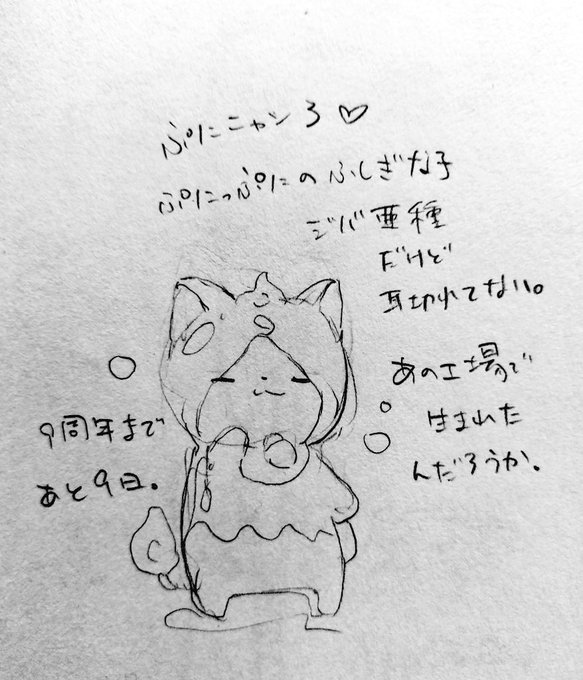 ぷにニャンろ♡
ぷにっぷにのふしぎな子
ジバ亜種
だけど
耳切れてない。
あの工場で
生まれた
んだろうか。
9周年まで
あと9日。